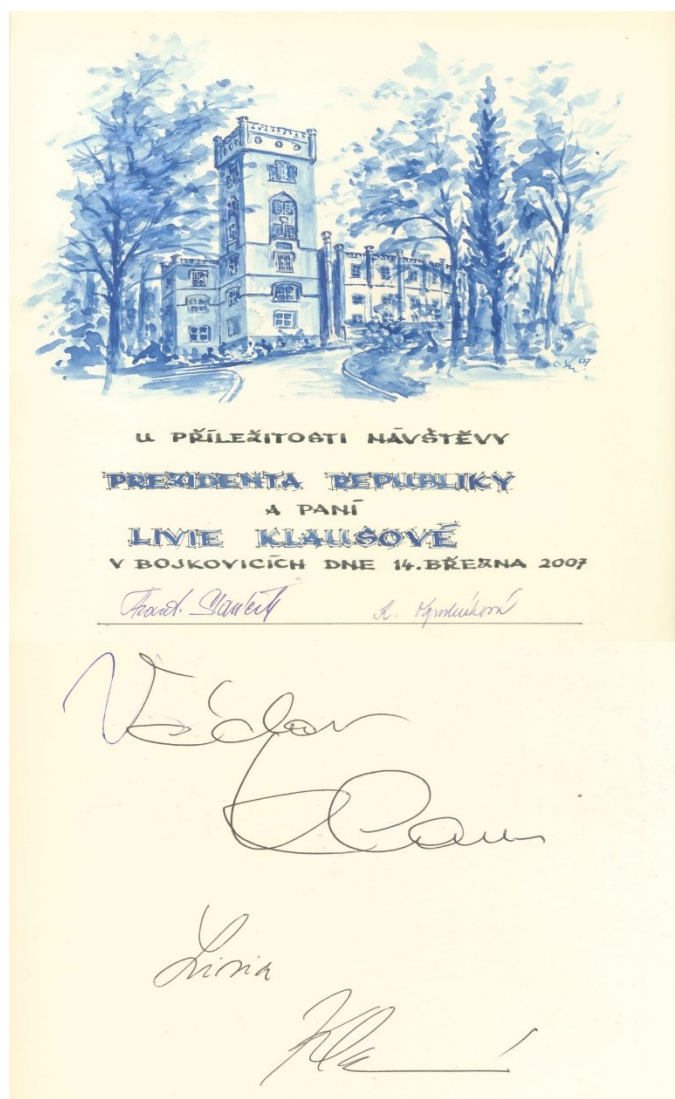 U PŘÍLEŽITOSTI NÁVŠTĚVY
PREZIDENTA REPUBLIKY
A PANÍ
LIVIE KLAUSOVÉ
V BOJKOVICÍCH DNE 14. BŘEZNA 2007
Václav
Klaus
Livia